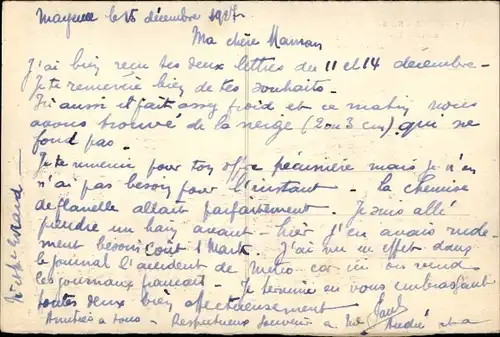 Mayence le 15 décembre 1927.
Ma chère Maman
J'ai bien reçu tes deux lettres du 11 et 14 décembre -
Je te remercie bien de tes souhaits.
Ici aussi il fait assez froid et ce matin nous
avons trouvé de la neige (2 ou 3 cm) qui ne
fond pas.
Je te remercie pour ton offre pécunière mais je n'en
n'ai pas besoin pour l'instant - la chemise
de flanelle allait parfaitement. Je suis allé
prendre un bain avant-hier j'en avais rude-
ment besoin Coût 1 Mark J'ai vu en effet dans
le journal l'accident de métro car ici on vend
les journaux français - Je termine en vous embrassant
toutes deux bien affectueusement
Paul
Amitiés à tous - Respectueux souvenir à Me André